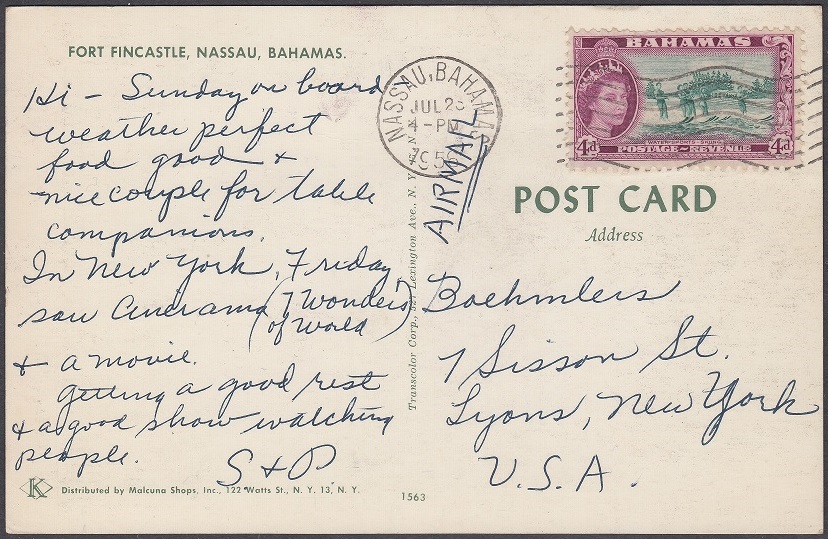 FORT FINCASTLE, NASSAU, BAHAMAS.
Hi - Sunday on board
weather perfect
food good &
nice couple for table
companions.
In New York, Friday
saw Cinerama (7 Wonders
of World)
& a movie.
getting a good rest
& a good show watching
people.
S & P
Distributed by Malcuna Shops, Inc., 122 Watts St., N. Y. 13, N. Y.
1563
K
Transcolor Corp., 527 Lexington Ave., N. Y.
NASSAU, BAHAMAS
JUL 23
4-PM
AIRMAIL
BAHAMAS
4d
POSTAGE - REVENUE
4d
POST CARD
Address
Boehmlers
7 Sisson St.
Lyons, New York
U.S.A.